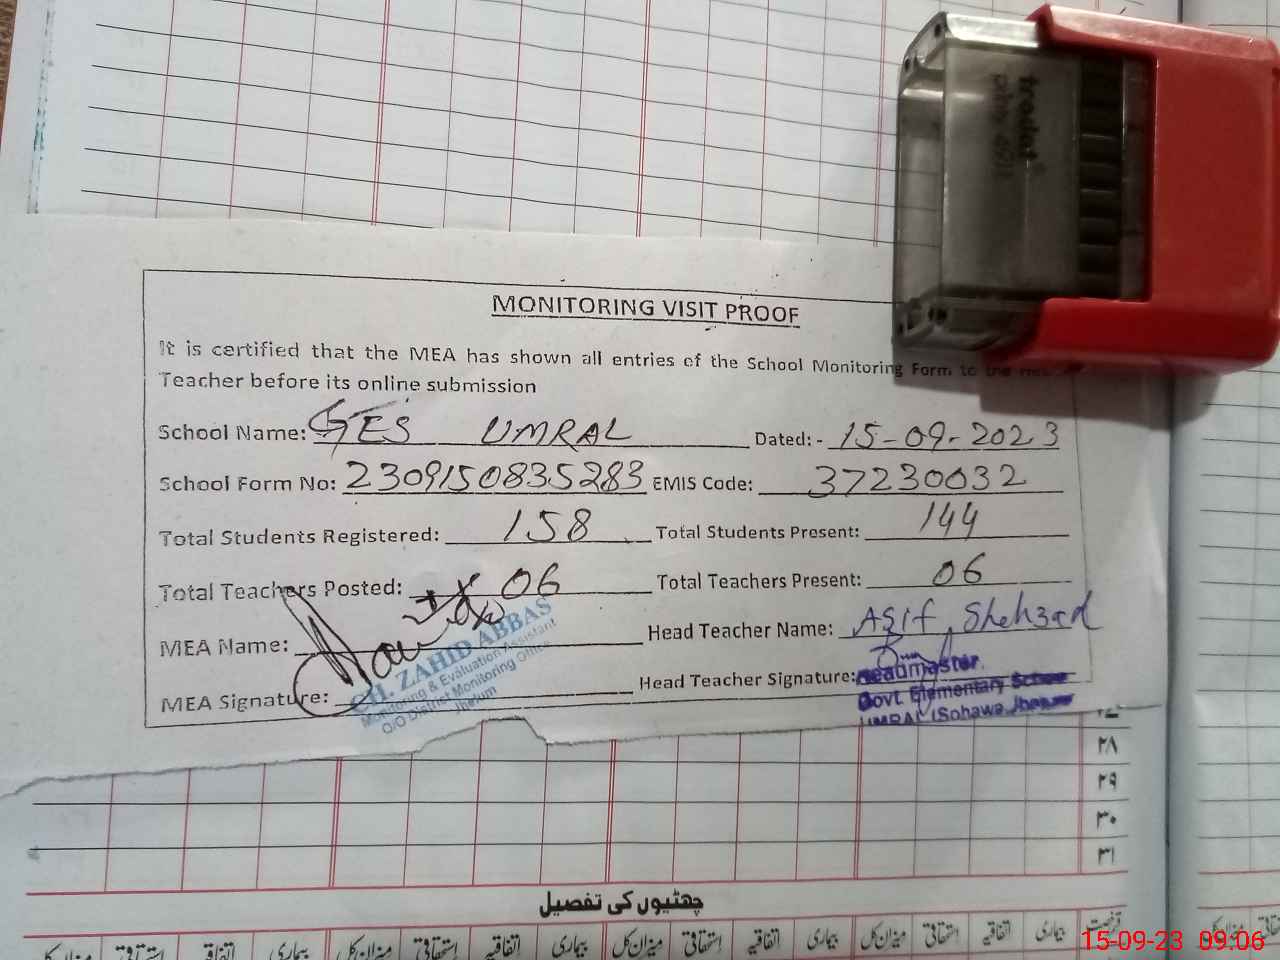 trodat
printy 4911
MONITORING VISIT PROOF
It is certified that the MEA has shown all entries of the School Monitoring Form to the
Teacher before its online submission
School Name: GES UMRAL Dated: - 15-09-2023
School Form No: 2309150835283 EMIS Code: 37230032
Total Students Registered: 158 Total Students Present: 144
Total Teachers Posted: 06 Total Teachers Present: 06
MEA Name: Head Teacher Name: Asif Shehzad
MEA Signature: Head Teacher Signature:
CH. ZAHID ABBAS
Monitoring & Evaluation Assistant
O/O District Monitoring Office
Jhelum
Headmaster
Govt. Elementary School
UMRAL (Sohawa, Jhelum
۲۸
۲۹
۳۰
۳۱
چھٹیوں کی تفصیل
رخصت بیماری اتفاقیہ استحقاقی میزان کل بیماری اتفاقیہ استحقاقی میزان کل بیماری اتفاقیہ استحقاقی میزان کل بیماری اتفاقیہ استحقاقی میزان کل
15-09-23 09:06